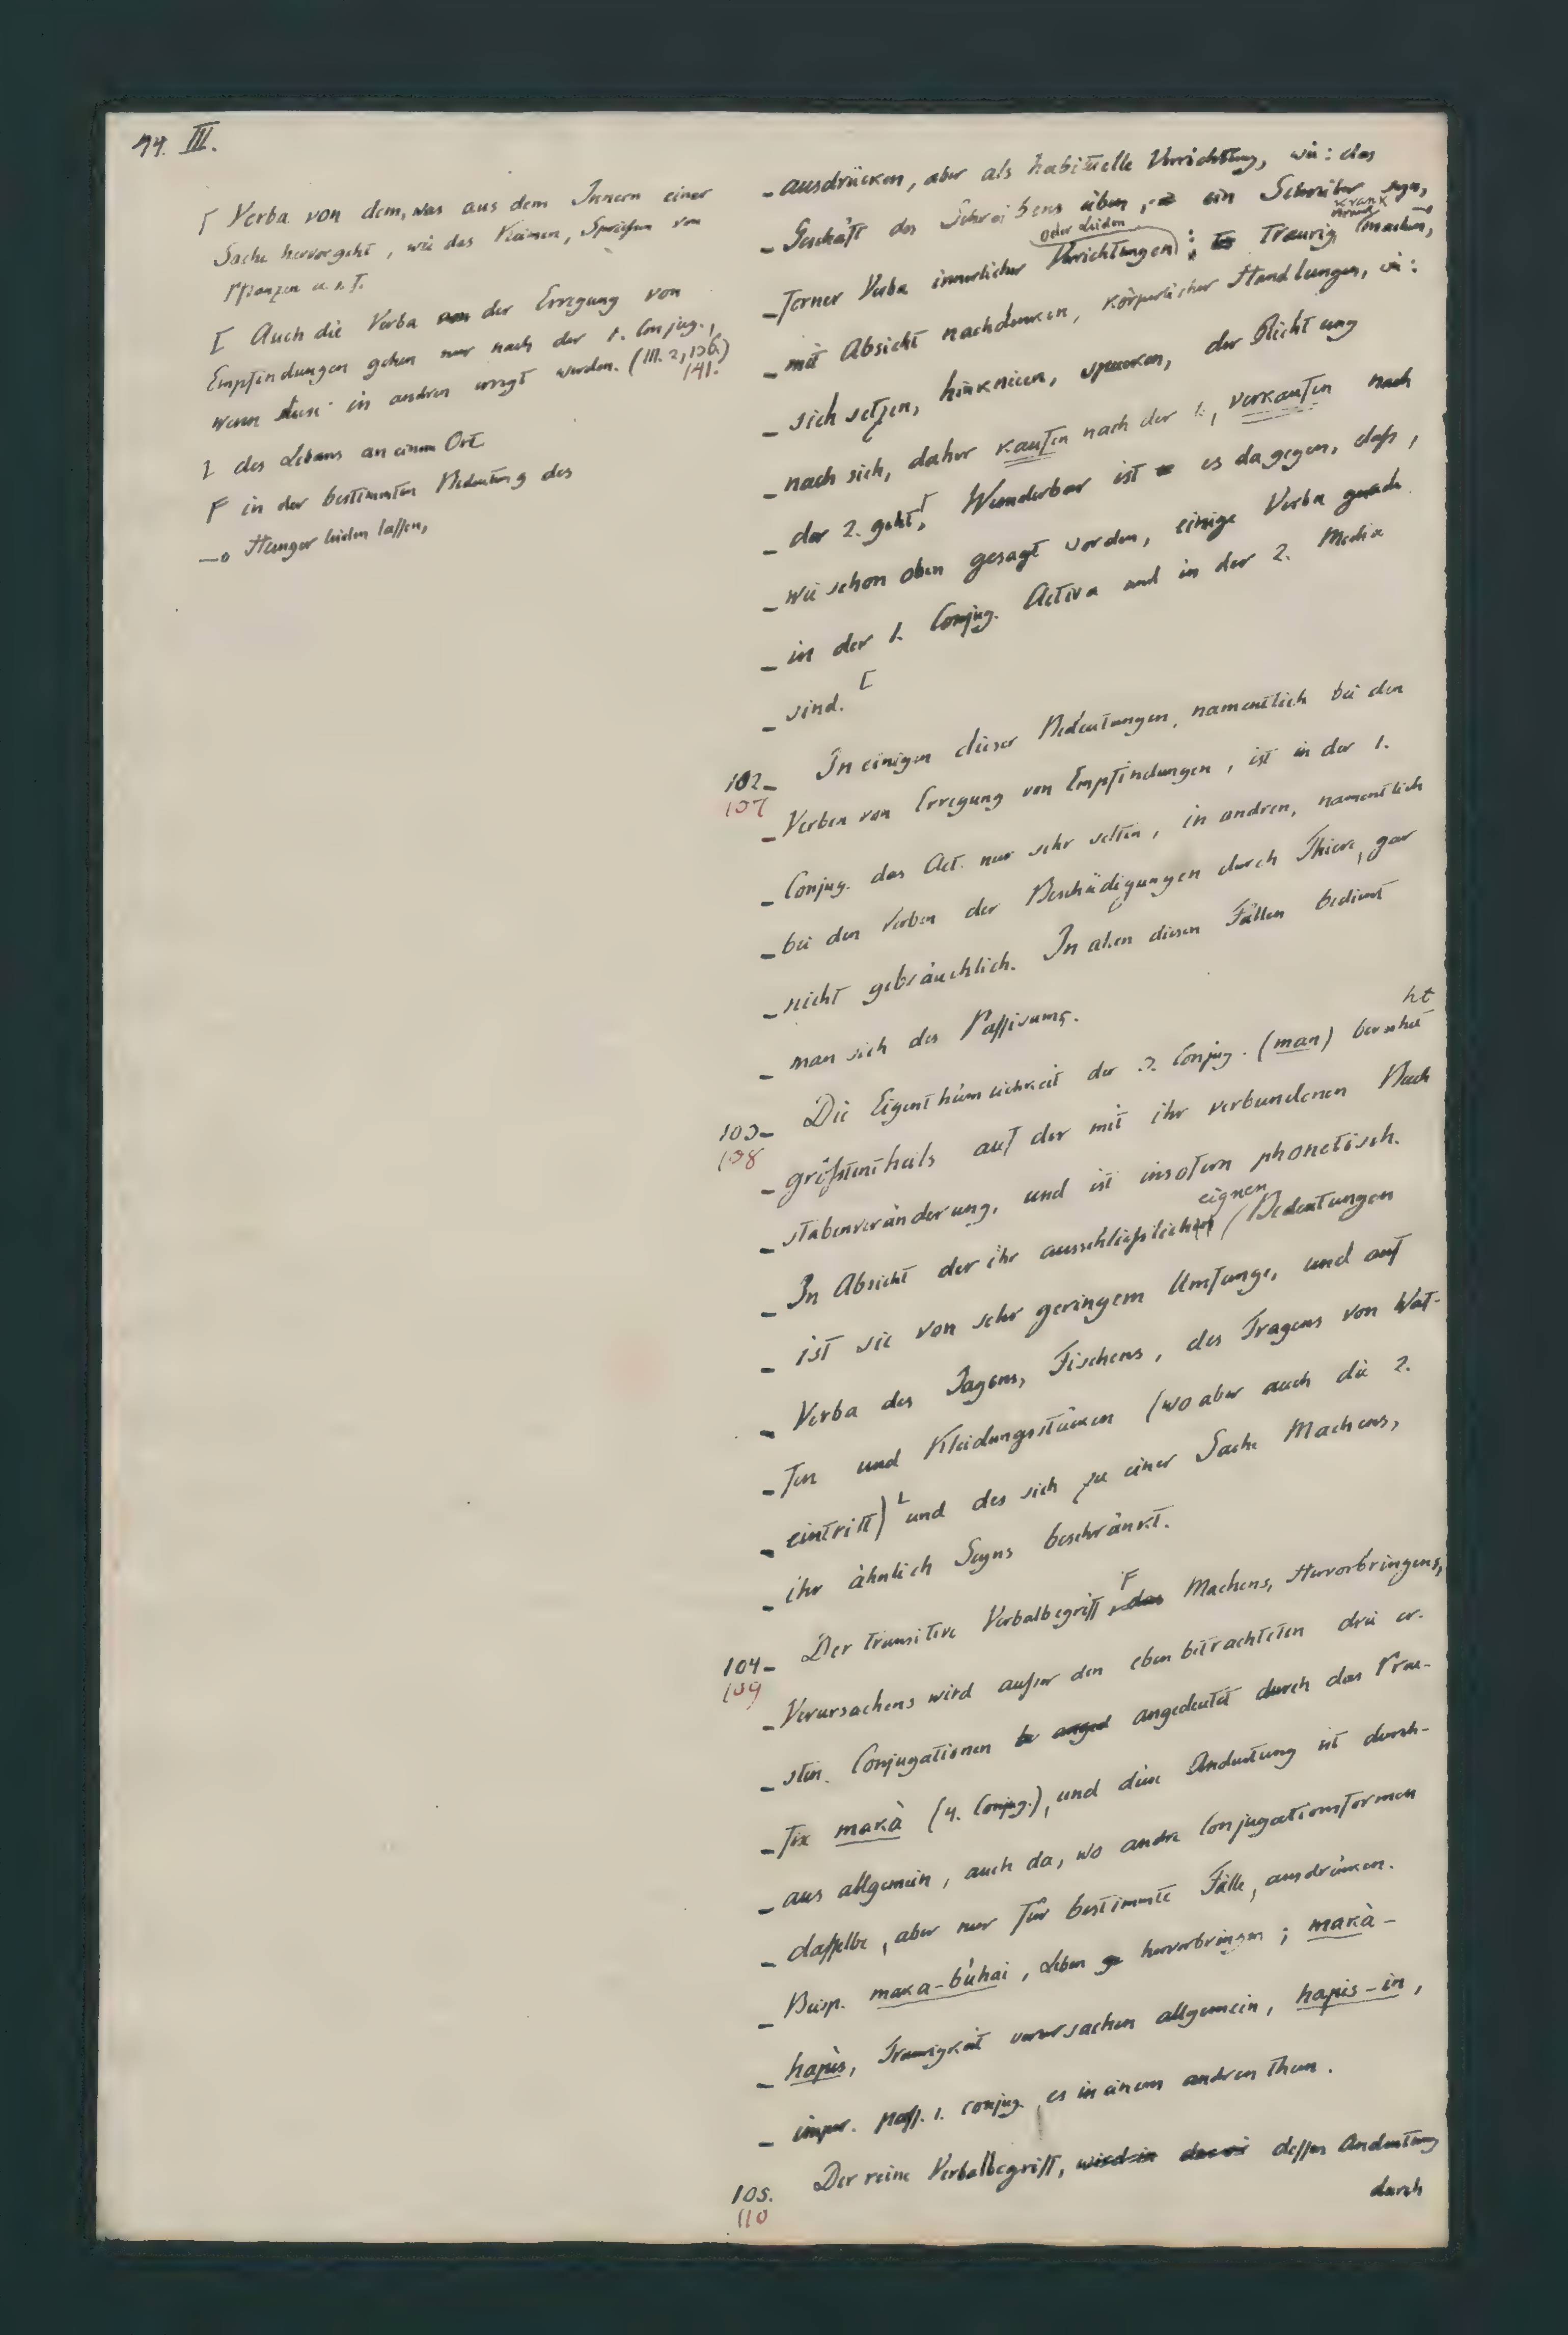 44. III.
[ Verba von dem, was aus dem Innern einer
Sache hervorgeht, wie das Keimen, Sprießen von
Pflanzen u. s. f.
[ Auch die Verba von der Erregung von
Empfindungen gehen nur nach der 1. Conjug.,
wenn diese in andren erregt werden. (III. 2, 136.)
141.
des Lebens an einem Ort
F in der bestimmten Bedeutung des
—o Hunger leiden lassen,
ausdrücken, aber als habituelle Verrichtung, wie: das
Geschäft des Schreibens üben, ein Schreiber seyn,
oder Leiden
krank
ferner Verba innerlicher Verrichtungen: traurig machen,
mit Absicht nachdenken, körperlicher Handlungen, wie:
sich setzen, hinknieen, spucken, der Richtung
nach sich, daher kaufen nach der 1., verkaufen nach
der 2. geht. Wunderbar ist es dagegen, daß,
wie schon oben gesagt worden, einige Verba gerade
in der 1. Conjug. Activa und in der 2. Media
sind. [
102- In einigen dieser Bedeutungen, namentlich bei den
107
Verben von Erregung von Empfindungen, ist in der 1.
Conjug. das Act. nur sehr selten, in andren, namentlich
bei den Verben der Beschädigungen durch Thiere, gar
nicht gebräuchlich. In allen diesen Fällen bedient
man sich des Passivums.
ht
103- Die Eigenthümlichkeit der 3. Conjug. (man) beruhet
108
größtentheils auf der mit ihr verbundenen Buch
stabenveränderung, und ist insofern phonetisch.
eignen
In Absicht der ihr ausschließlichen Bedeutungen
ist sie von sehr geringem Umfange, und auf
Verba des Jagens, Fischens, des Tragens von Waf-
fen und Kleidungsstücken (wo aber auch die 2.
eintritt) und des sich zu einer Sache Machens,
ihr ähnlich Seyns beschränkt.
104- Der transitive Verbalbegriff F des Machens, Hervorbringens,
109
Verursachens wird außer den eben betrachteten drei er-
sten Conjugationen be anged angedeutet durch das Prae-
fix makà (4. Conjug.), und diese Andeutung ist durch-
aus allgemein, auch da, wo andre Conjugationsformen
dasselbe, aber nur für bestimmte Fälle, ausdrücken.
Beisp. maka-búhai, Leben hervorbringen; makà-
hapis, Traurigkeit verursachen allgemein, hapis-in,
imper. pass. 1. conjug. es in einem andren thun.
105. Der reine Verbalbegriff, wird in dessen Andeutung
110
durch